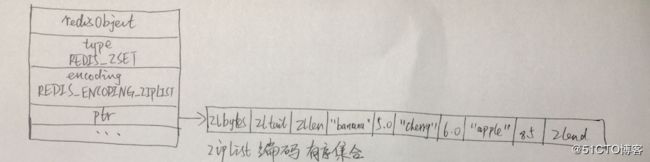 redisObject
type
REDIS_ZSET
encoding
REDIS_ENCODING_ZIPLIST
ptr
...
zlbytes zltail zllen "banana" 5.0 "cherry" 6.0 "apple" 8.5 zlend
ziplist 编码 有序集合
@51CTO博客